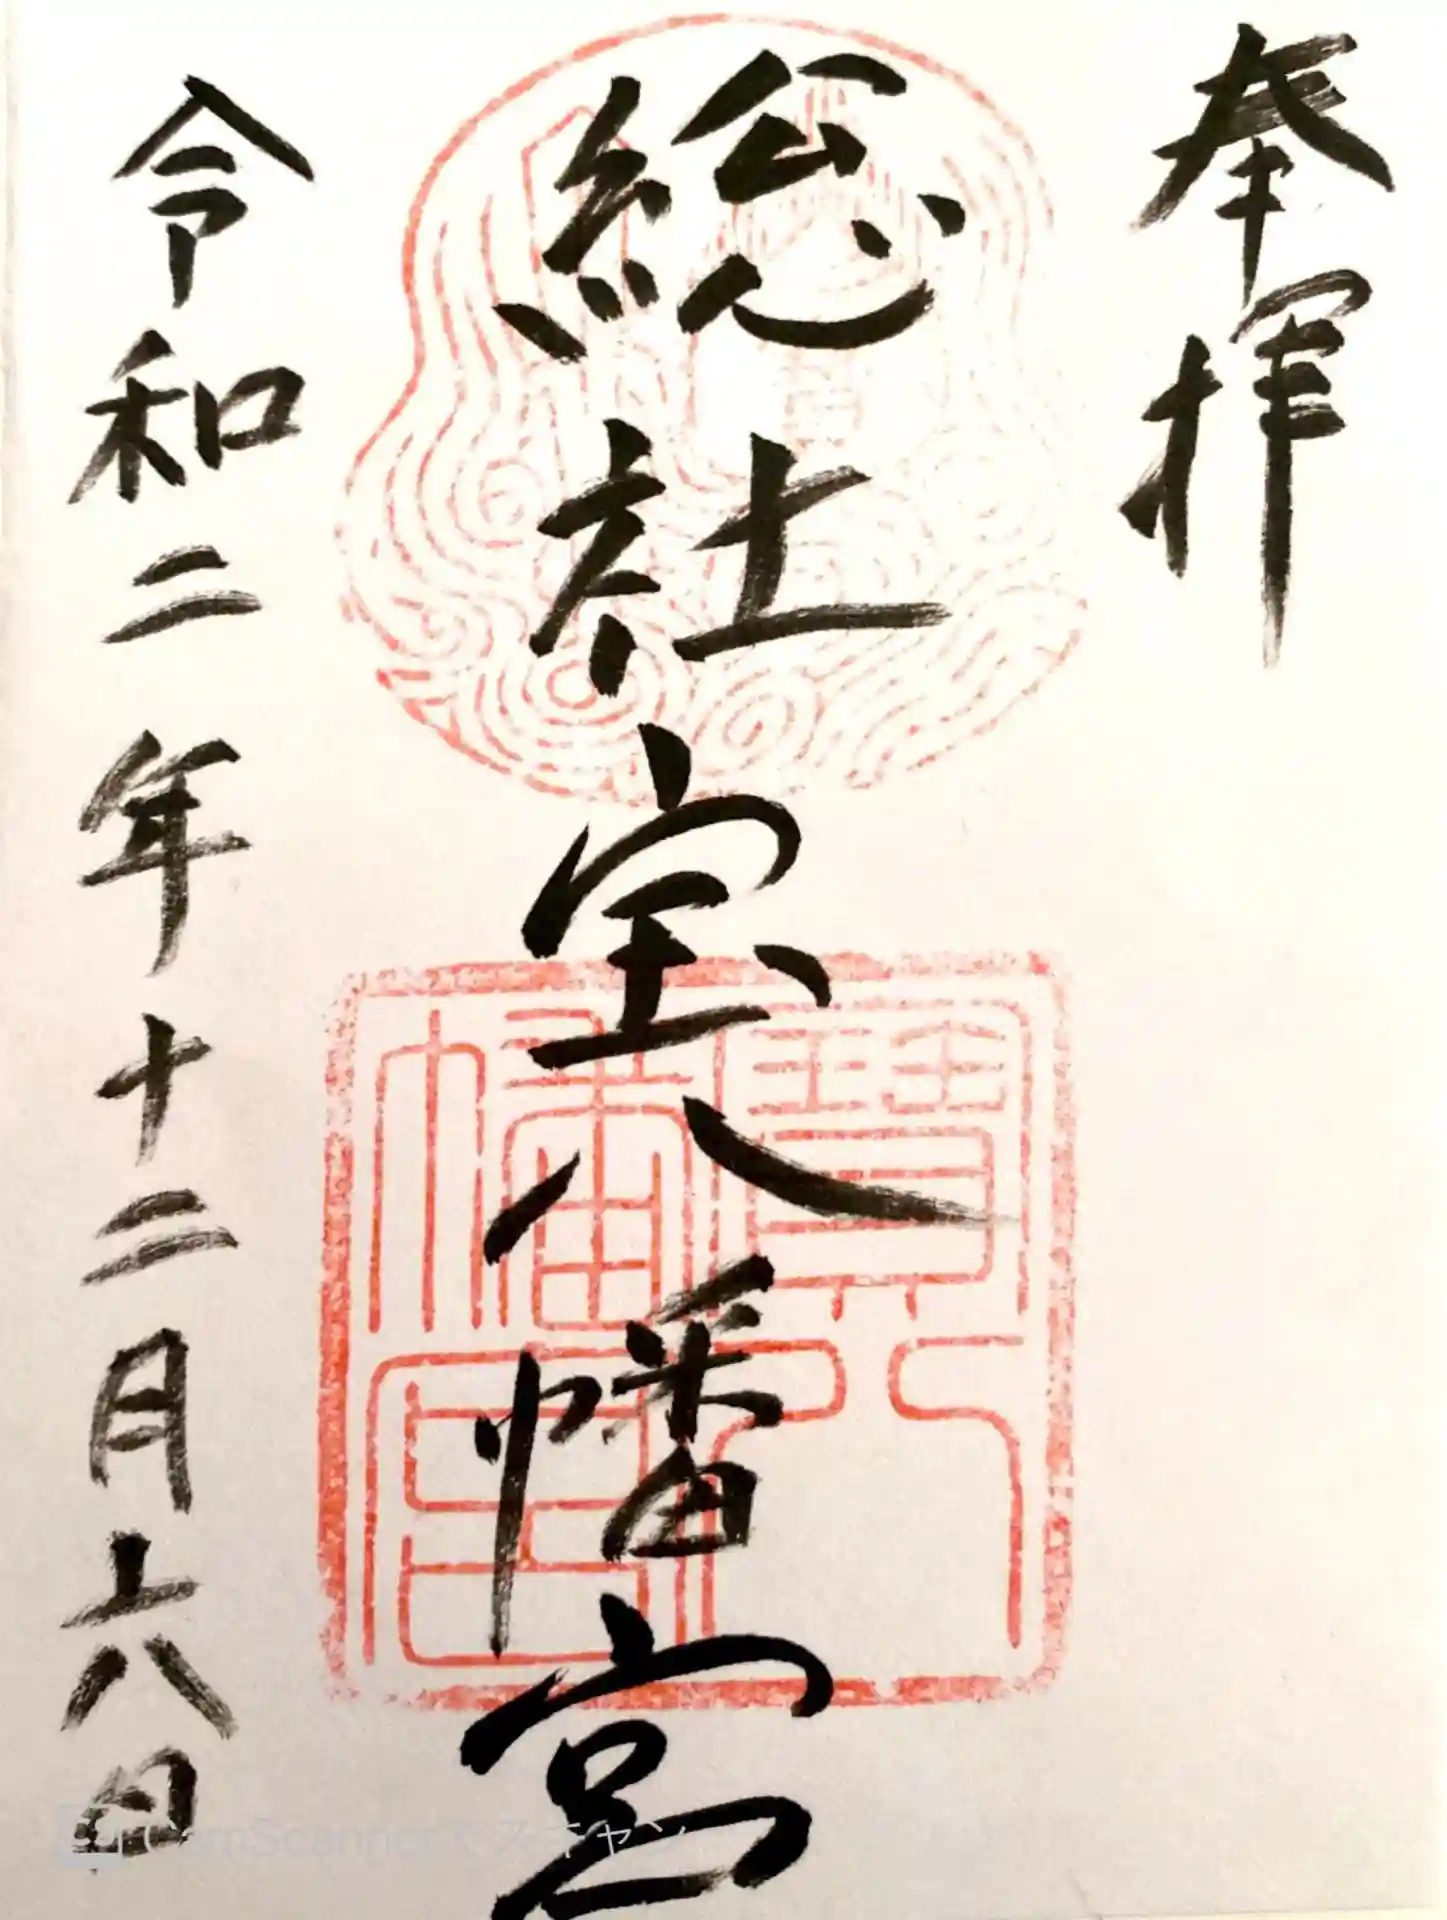 奉拝
総社宝八幡宮
寶八
幡宮
令和二年十二月六日
CamScannerでスキャン